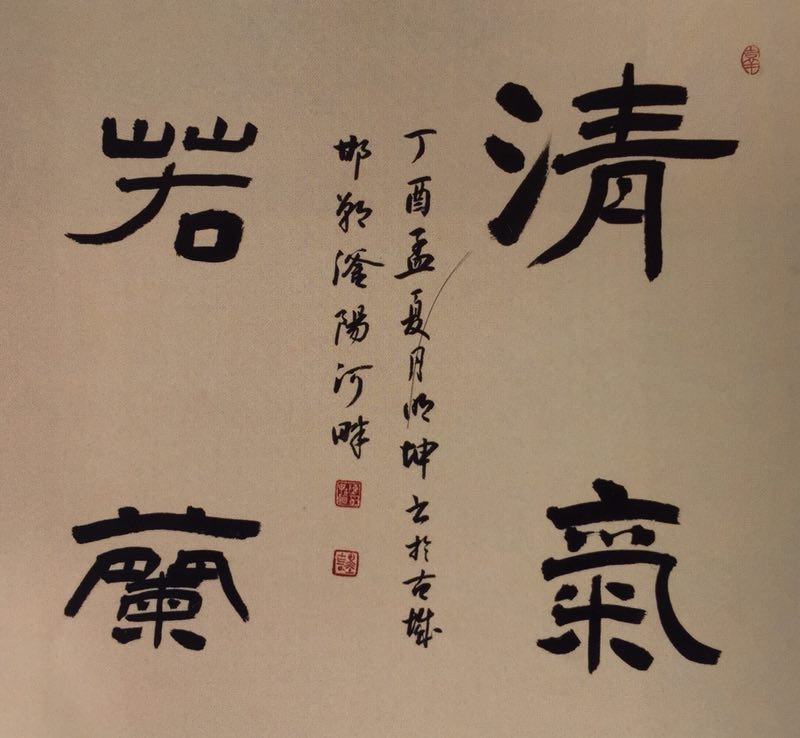 清氣
若蘭
丁酉孟夏月明坤書於古城
邯鄲滏陽河畔